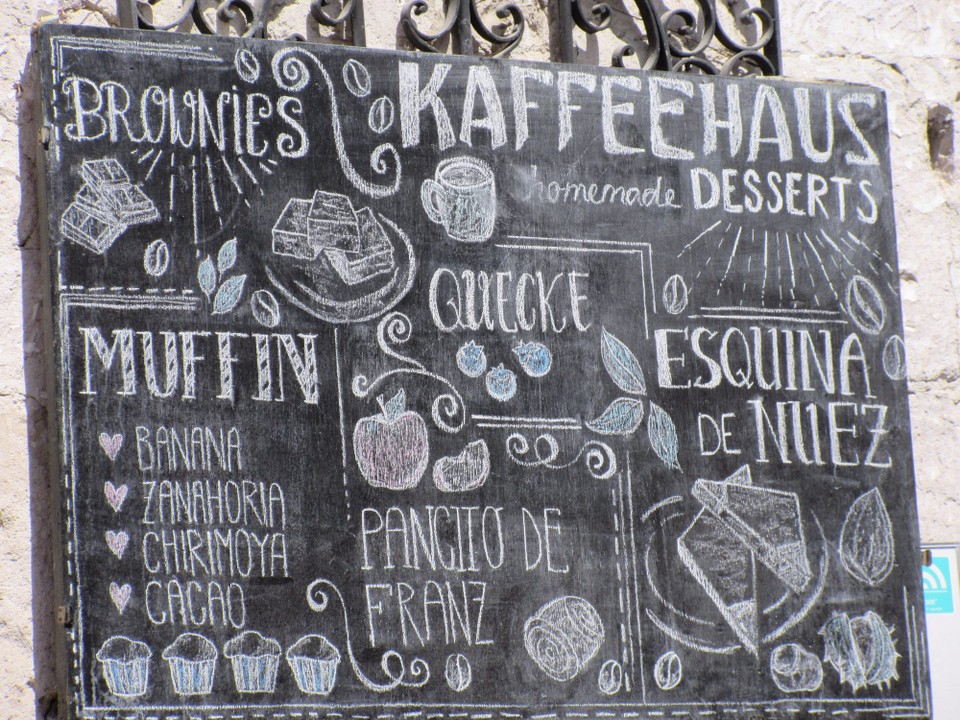 BROWNIES
KAFFEEHAUS
homemade DESSERTS
QUECKE
MUFFIN
BANANA
ZANAHORIA
CHIRIMOYA
CACAO
PANCITO DE
FRANZ
ESQUINA
DE NUEZ